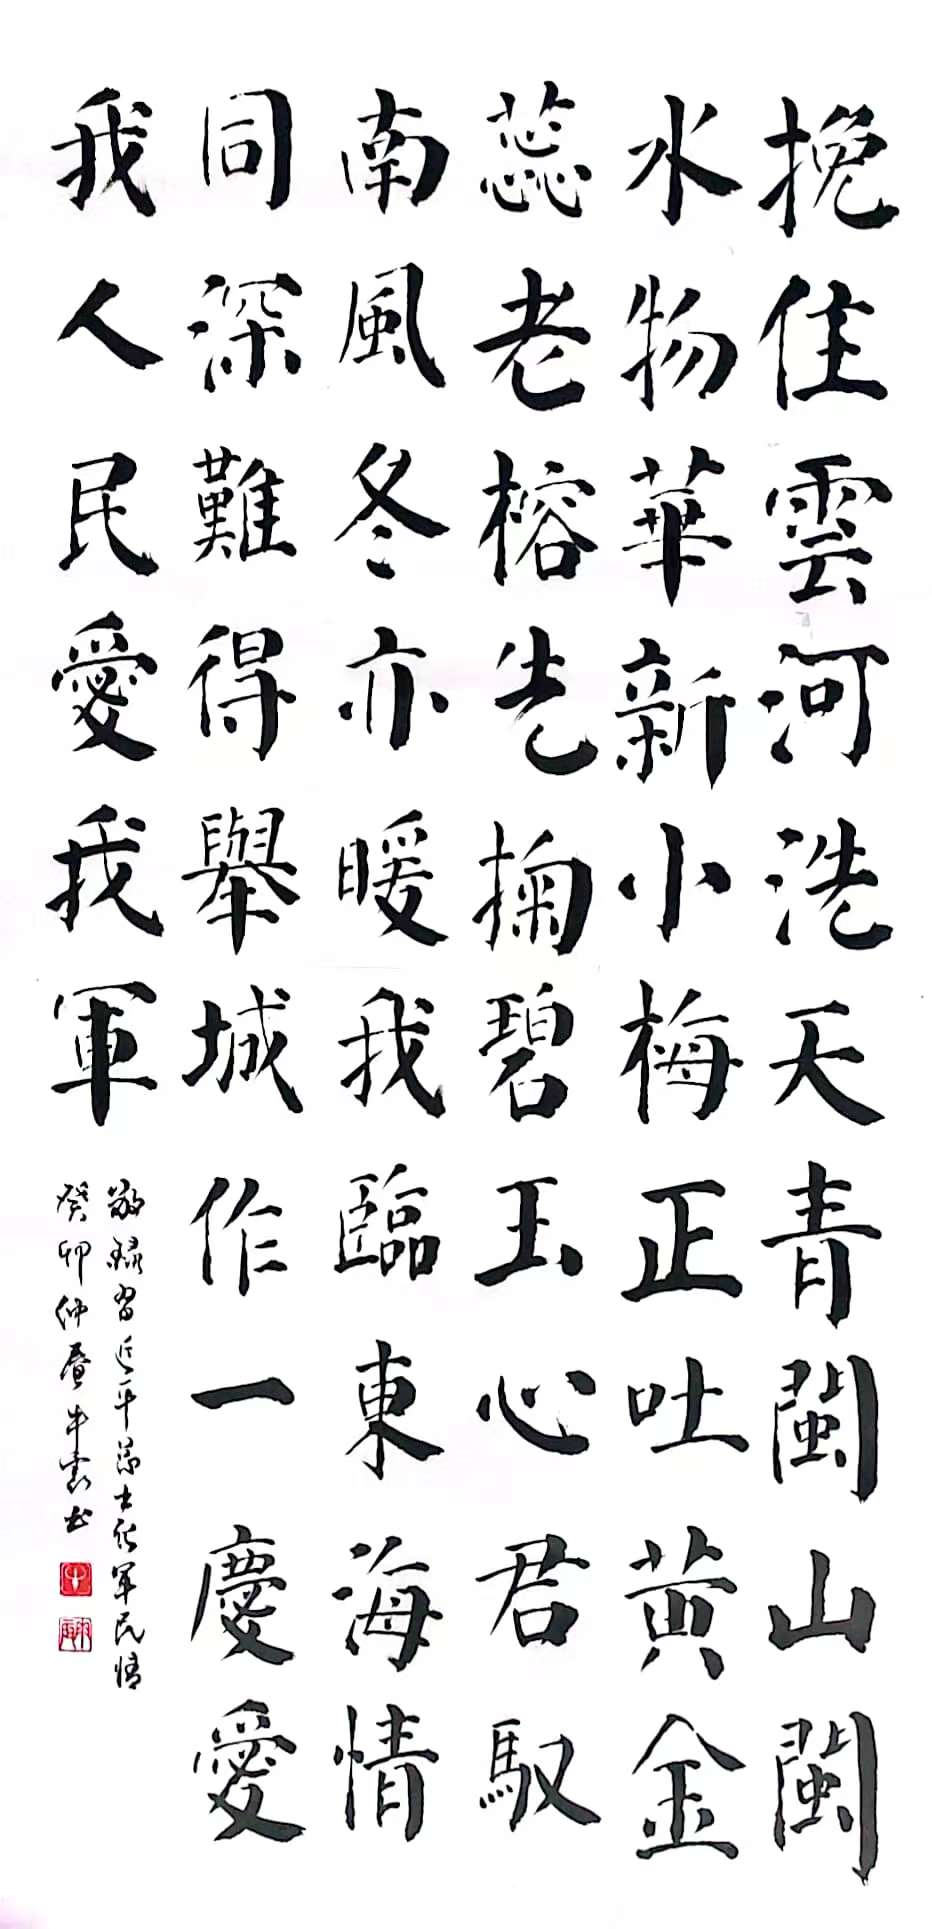 挽住雲河洗天青閩山閩
水物華新小梅正吐黃金
蕊老榕先掬碧玉心君馭
南風冬亦暖我臨東海情
同深難得舉城作一慶愛
我人民愛我軍
敬錄習近平軍民情
癸卯仲夏牛書